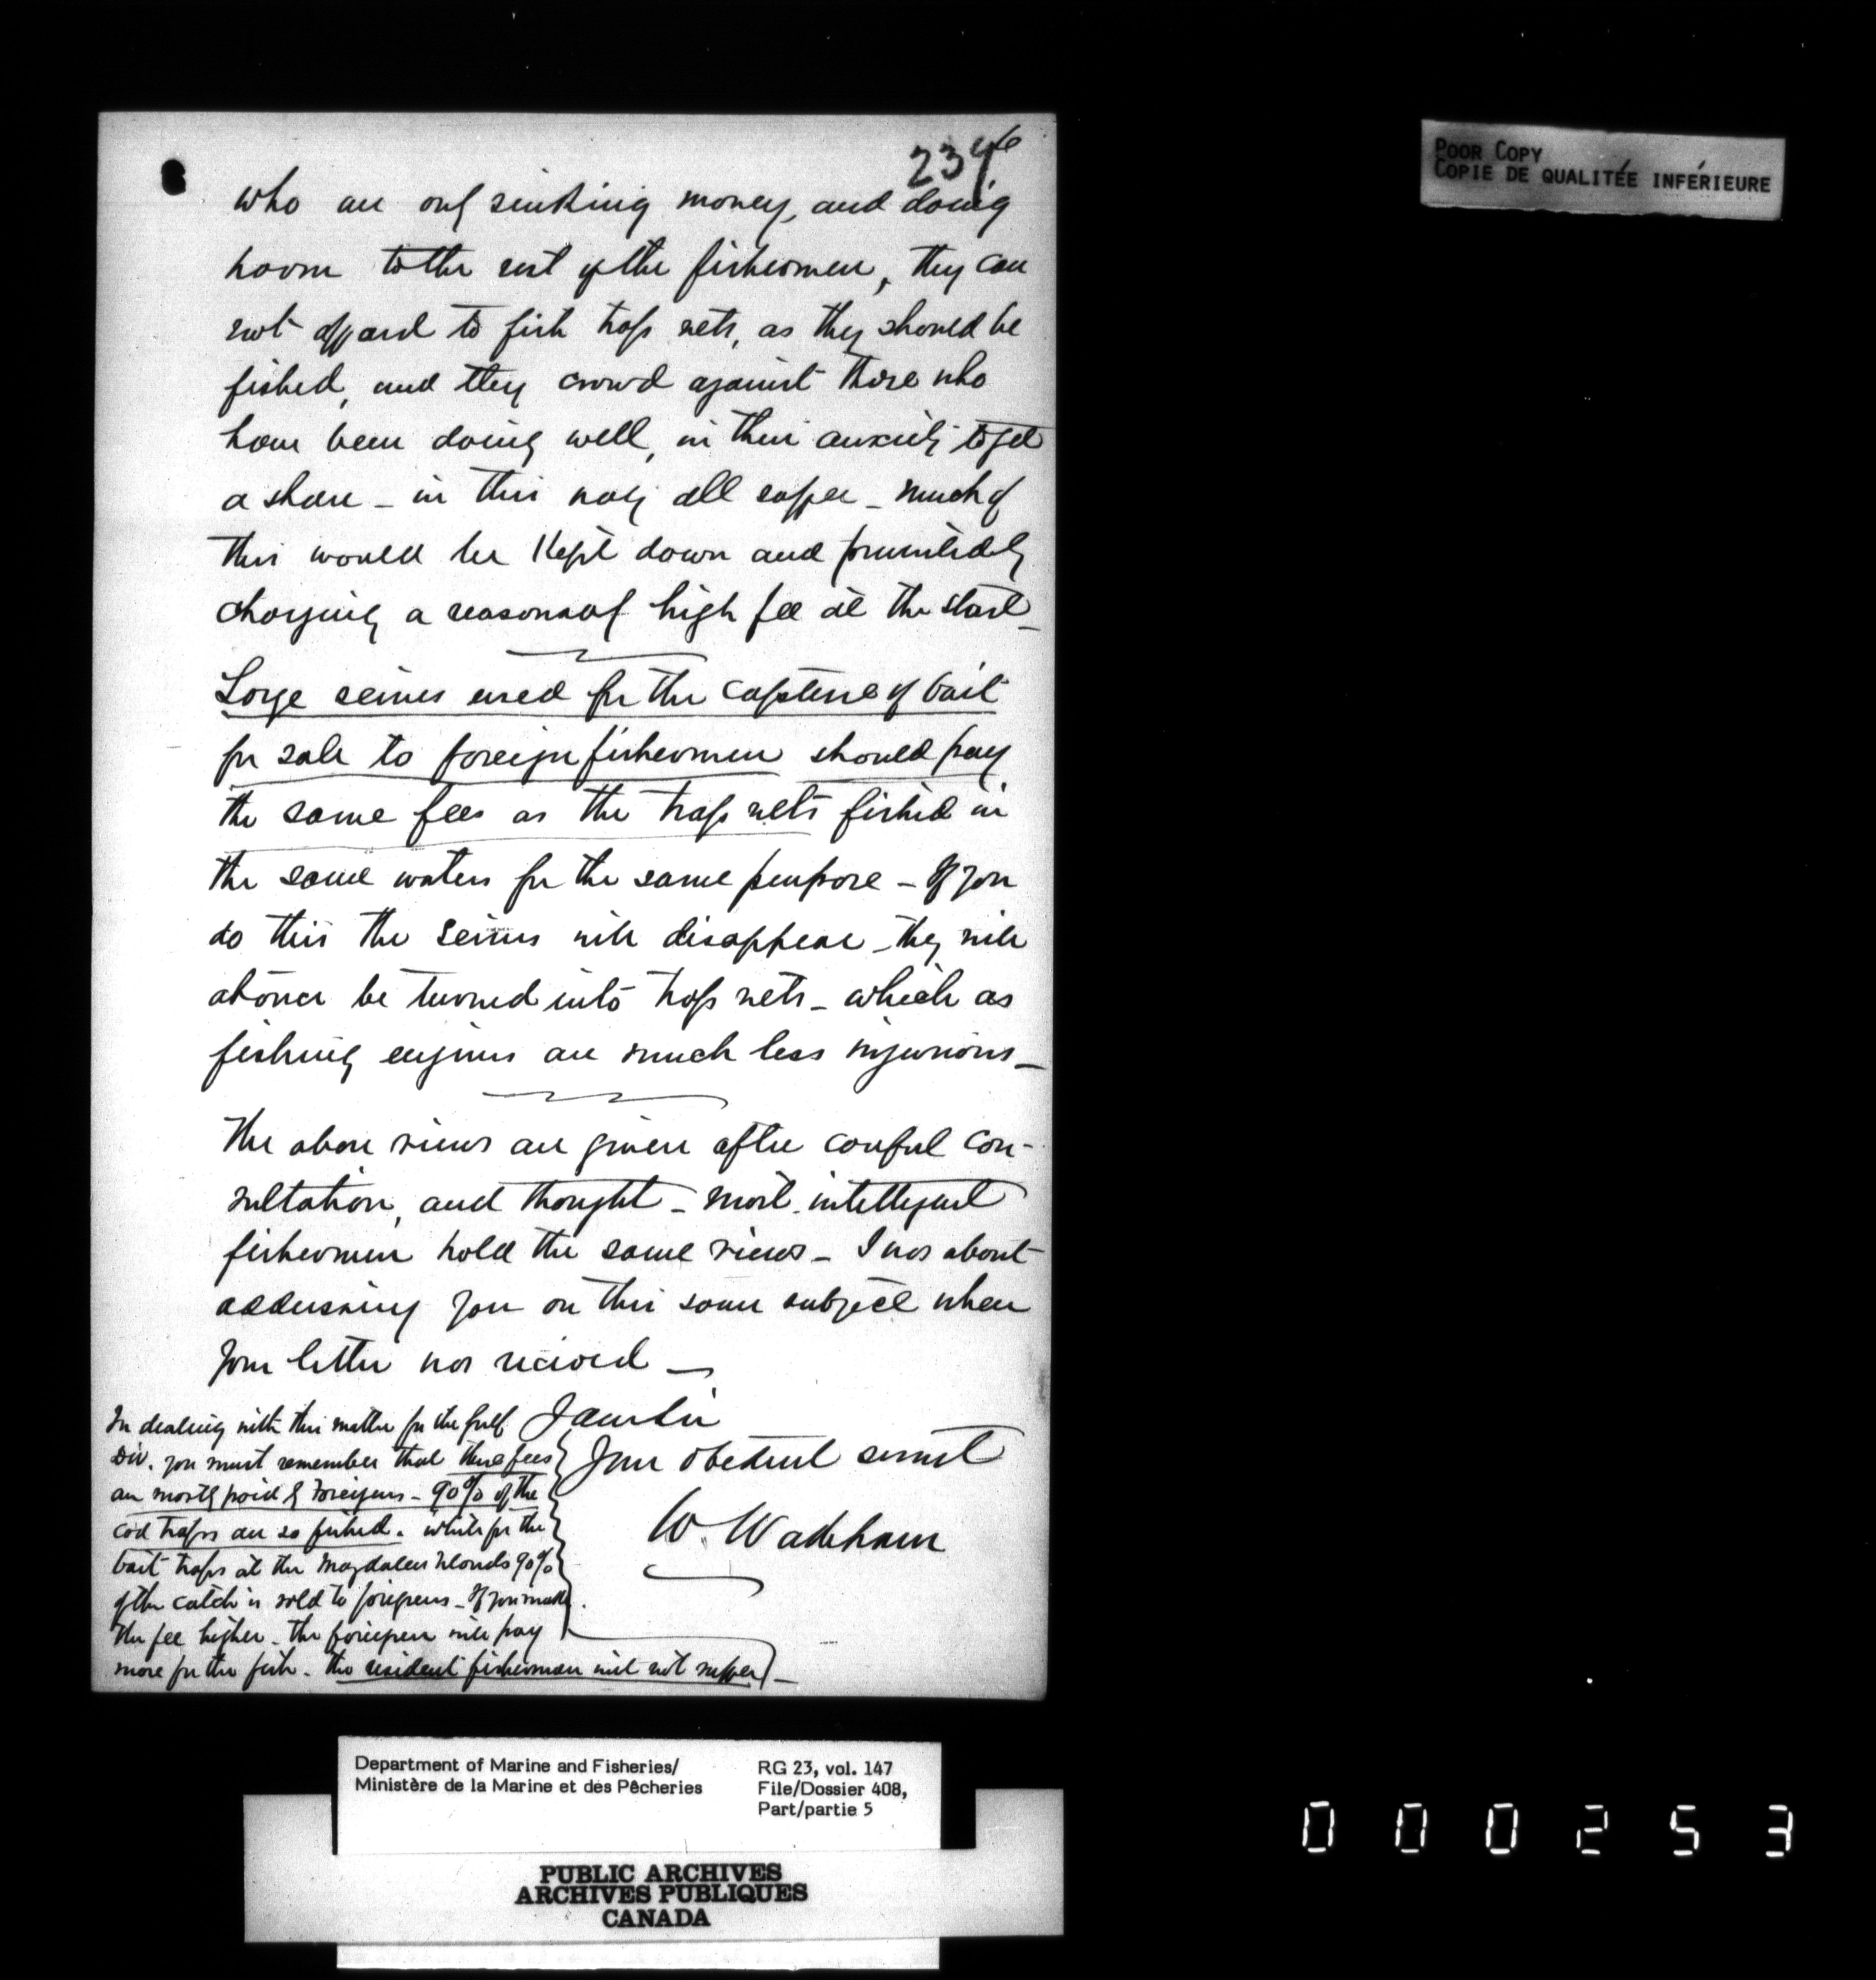 234
who are only sinking money, and doing
harm to the rest of the fishermen, they can
not afford to fish trap nets, as they should be
fished, and they crowd against those who
have been doing well, in their anxiety to get
a share – in this way all suffer – much of
this would be kept down and prevented by
charging a reasonably high fee at the start –
Large seines used for the capture of bait
for sale to foreign fishermen should pay
the same fees as the trap nets fished in
the same waters for the same purpose – If you
do this the seines will disappear – they will
at once be turned into trap nets – which as
fishing engines are much less injurious –
The above views are given after careful con-
sultation, and thought – most intelligent
fishermen hold the same views – I was about
addressing you on this same subject when
your letter was received –
I am Sir
Your obedient servant
W. Wakeham
In dealing with this matter for the Gulf
Div. you must remember that these fees
are mostly paid by Foreigners – 90% of the
cod traps are so fished. while for the
bait traps at the Magdalen Islands 90%
of the catch is sold to foreigners – If you make
the fee higher – the foreigner will pay
more for the fish – the resident fisherman will not suffer –
POOR COPY
COPIE DE QUALITÉE INFÉRIEURE
Department of Marine and Fisheries/
Ministère de la Marine et des Pêcheries
RG 23, vol. 147
File/Dossier 408,
Part/partie 5
PUBLIC ARCHIVES
ARCHIVES PUBLIQUES
CANADA
000253